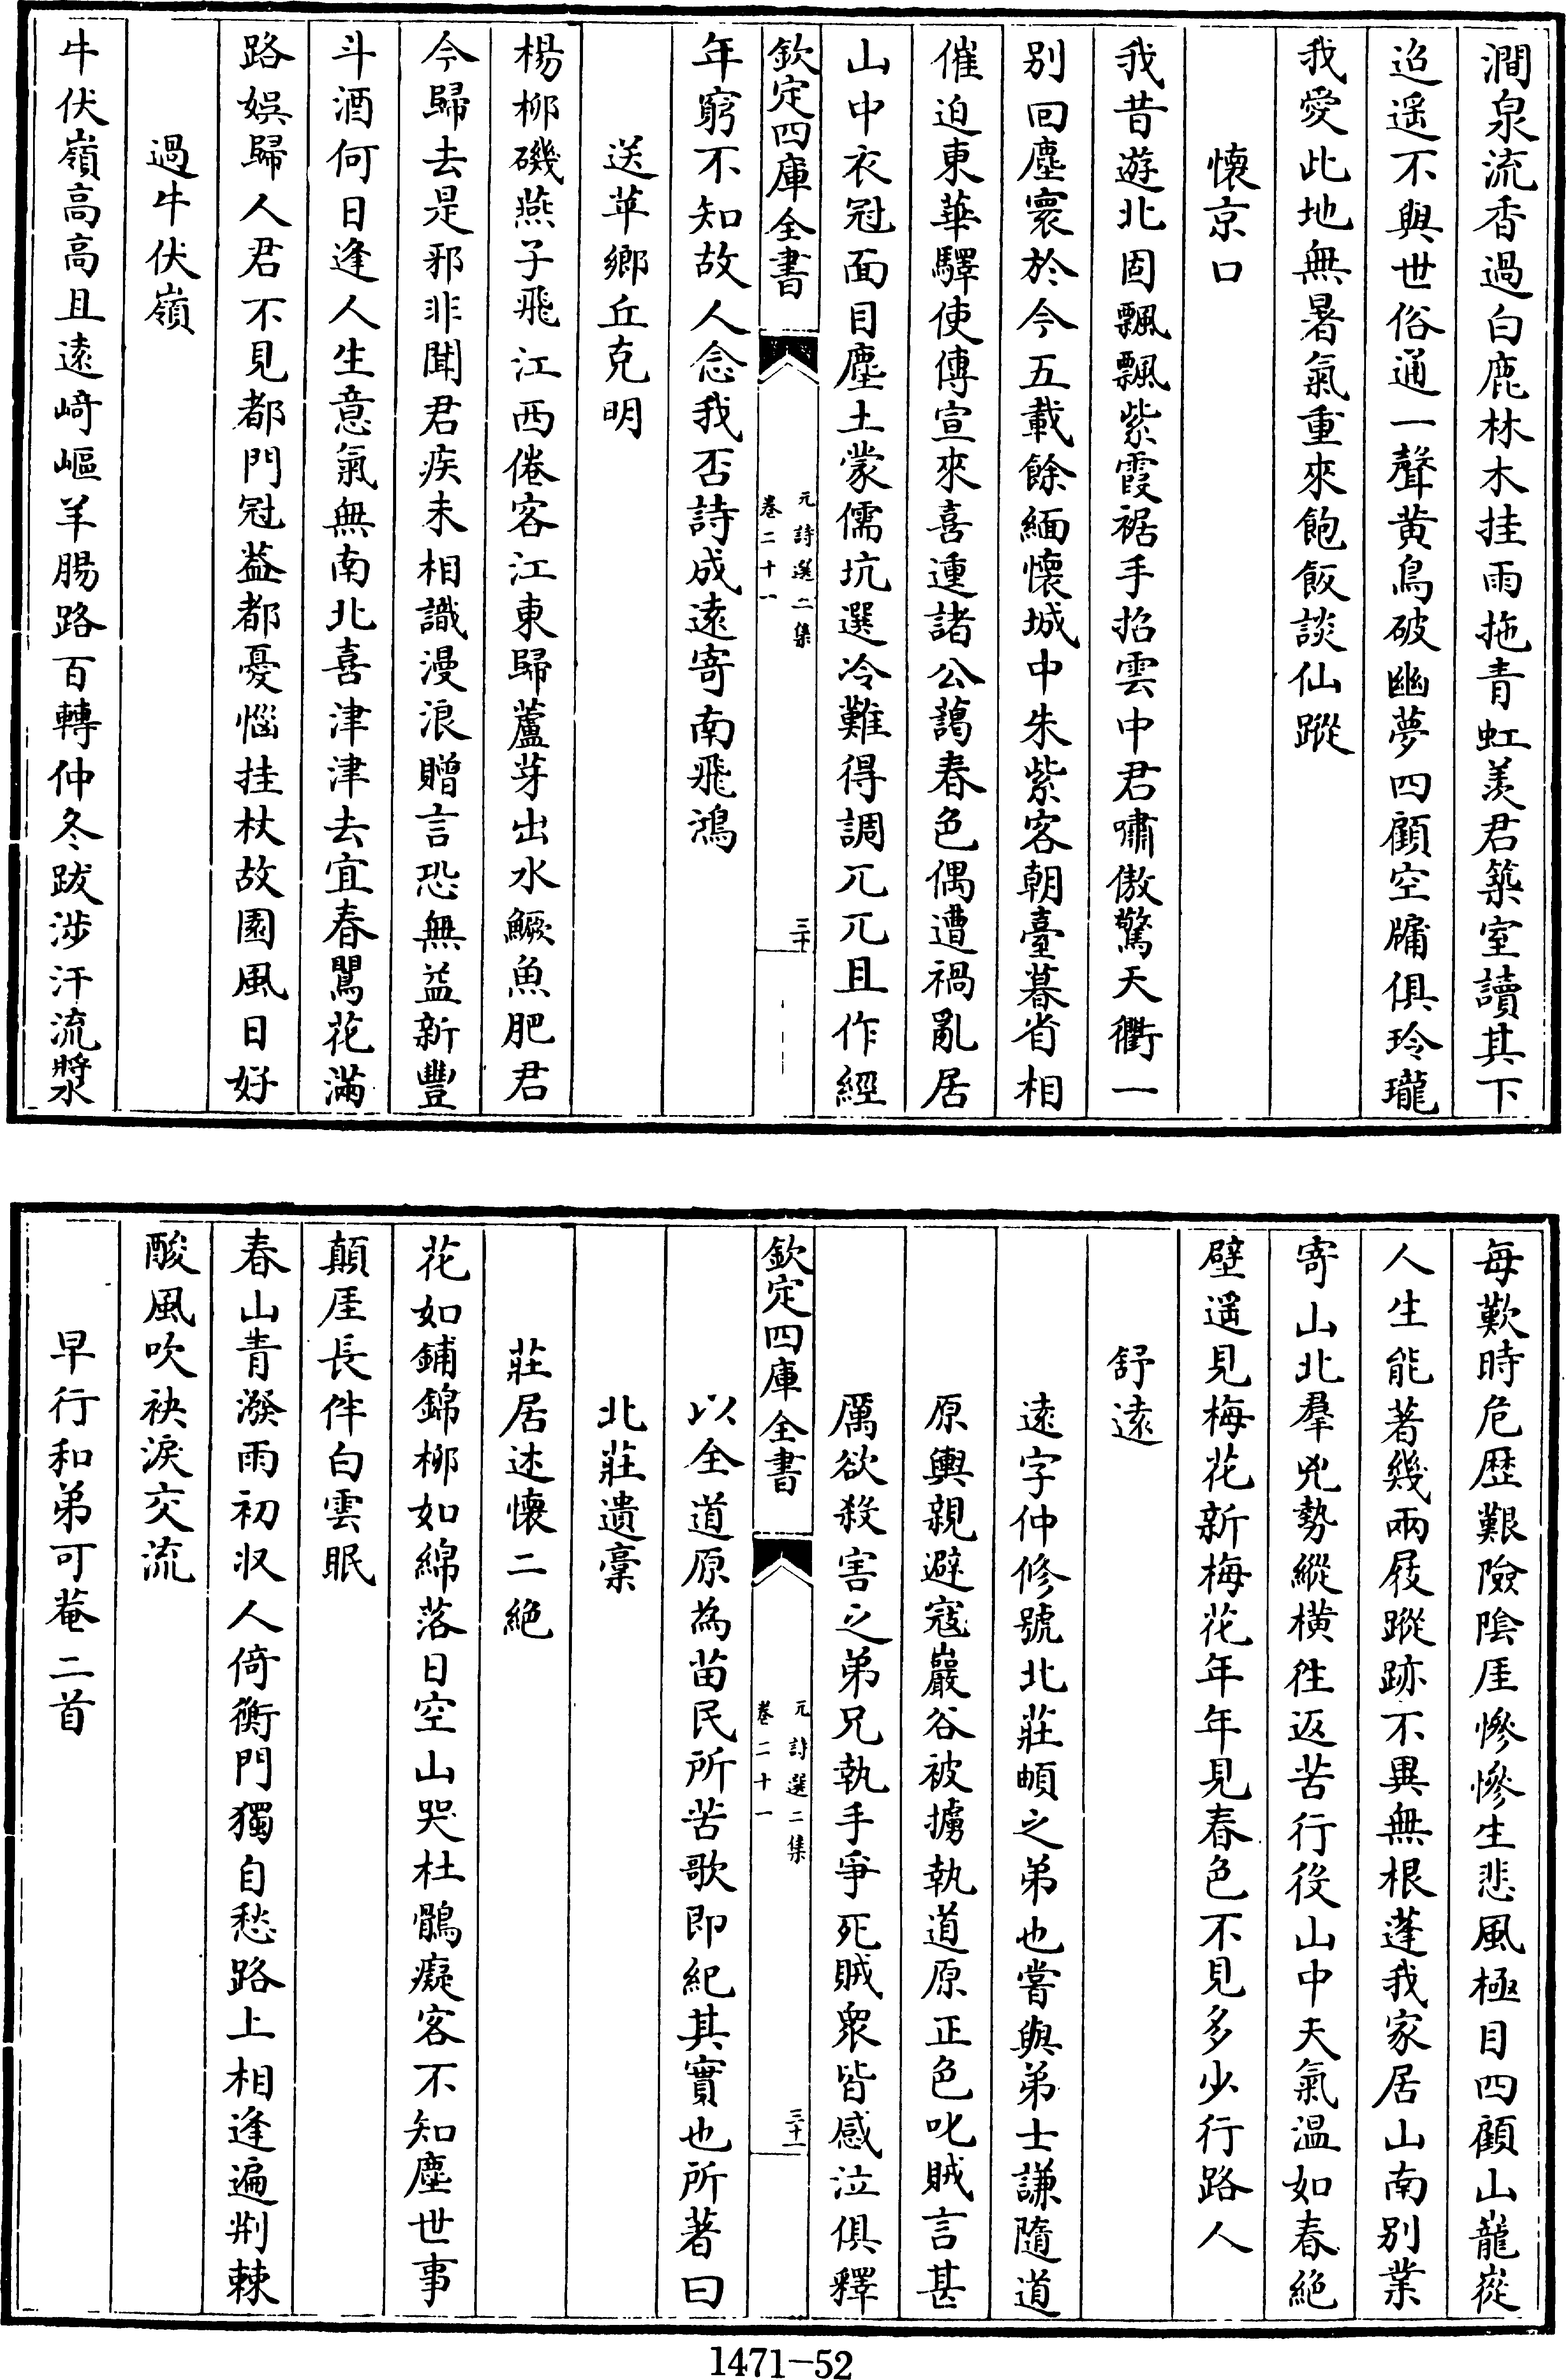 澗泉流香過白鹿林木挂雨拖青虹羨君築室讀其下
迢遥不與世俗通一聲黄鳥破幽夢四顧空牖俱玲瓏
我愛此地無暑氣重來飽飯談仙蹤
懷京口
我昔遊北固飄飄紫霞裾手招雲中君嘯傲驚天衢一
别回塵寰於今五載餘緬懷城中朱紫客朝臺暮省相
催迫東華驛使傳宣來喜連諸公藹春色偶遭禍亂居
山中衣冠面目塵土蒙儒坑選冷難得調兀兀且作經
欽定四庫全書
元詩選二集
卷二十一
三十
年窮不知故人念我否詩成遠寄南飛鴻
送苹鄉丘克明
楊柳磯燕子飛江西倦客江東歸蘆芽出水鱖魚肥君
今歸去是邪非聞君疾未相識漫浪贈言恐無益新豐
斗酒何日逢人生意氣無南北喜津津去宜春闖花滿
路娯歸人君不見都門冠葢都憂惱挂杖故園風日好
過牛伏嶺
牛伏嶺高高且遠崎嶇羊腸路百轉仲冬跋涉汗流漿
每歎時危歴艱險陰厓慘慘生悲風極目四顧山巃嵸
人生能著幾兩屐蹤跡不異無根蓬我家居山南别業
寄山北羣兇勢縱横往返苦行役山中天氣温如春絶
壁遥見梅花新梅花年年見春色不見多少行路人
舒遠
遠字仲修號北莊頔之弟也嘗與弟士謙隨道
原輿親避寇巖谷被擄執道原正色叱賊言甚
厲欲殺害之弟兄執手爭死賊衆皆感泣俱釋
欽定四庫全書
元詩選二集
卷二十一
三十一
以全道原為苗民所苦歌即紀其實也所著曰
北莊遺稾
莊居述懷二絶
花如鋪錦柳如綿落日空山哭杜鵑癡客不知塵世事
顛厓長伴白雲眠
春山青潑雨初收人倚衡門獨自愁路上相逢遍荆棘
酸風吹袂淚交流
早行和弟可菴二首
1471-52